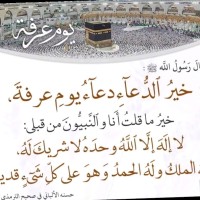 يوم عرفة
قال رسول الله ﷺ :
خيرُ الدُّعاءِ دعاءُ يومِ عرفةَ،
خيرُ ما قلتُ أنا والنَّبيُّونَ من قبلي:
لا إلهَ إلَّا اللَّهُ وحدَهُ لا شريكَ لَهُ،
الملكُ ولَهُ الحمدُ وَهوَ على كلِّ شيءٍ قدير
حسنه الألباني في صحيح الترمذي